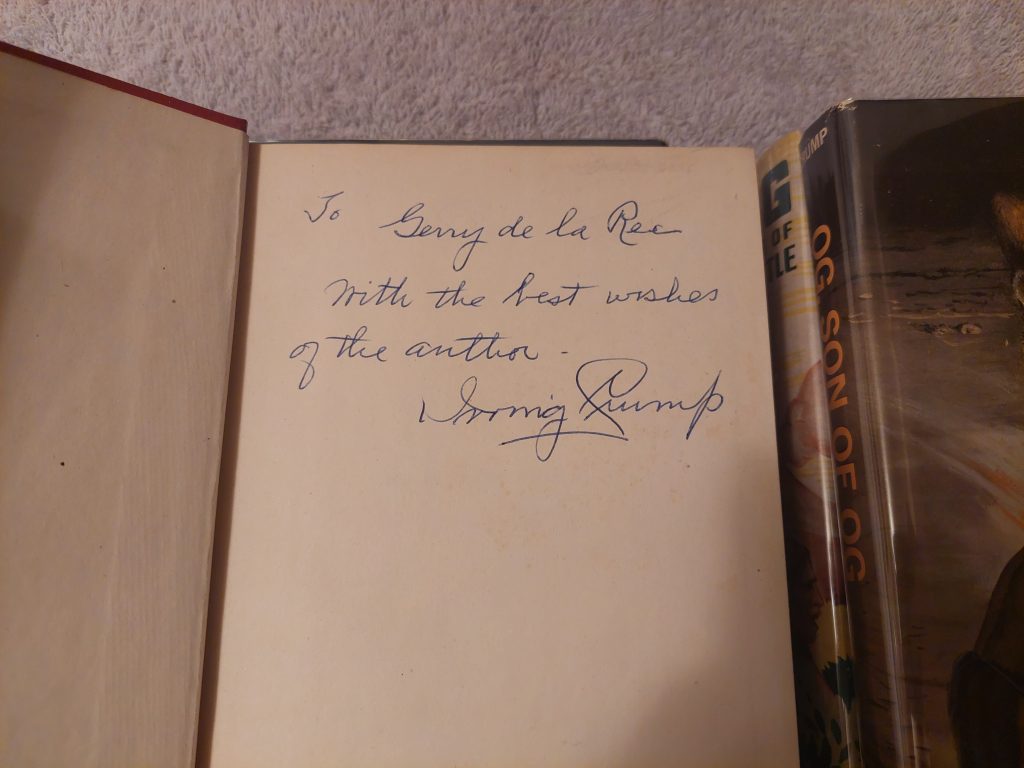 To Gerry de la Ree
With the best wishes
of the author -
Irving Crump
G
OF
TLE
RUMP
OG SON OF OG